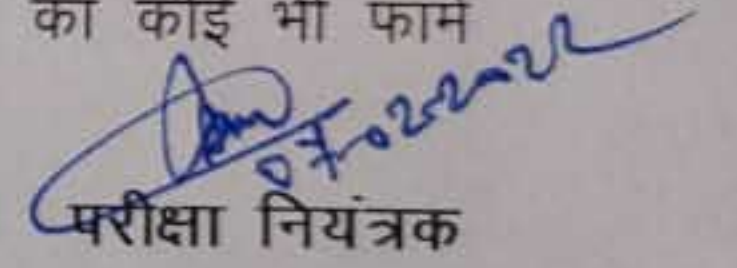 का कोई भी फार्म
07.02.2022
परीक्षा नियंत्रक